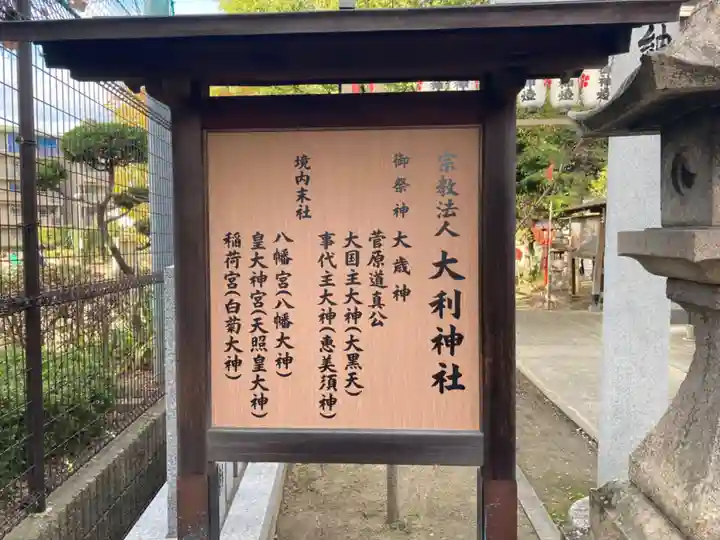 宗教法人 大利神社
御祭神 大歳神
菅原道真公
大国主大神(大黒天)
事代主大神(恵美須神)
境内末社
八幡宮(八幡大神)
皇大神宮(天照皇大神)
稲荷宮(白菊大神)
納